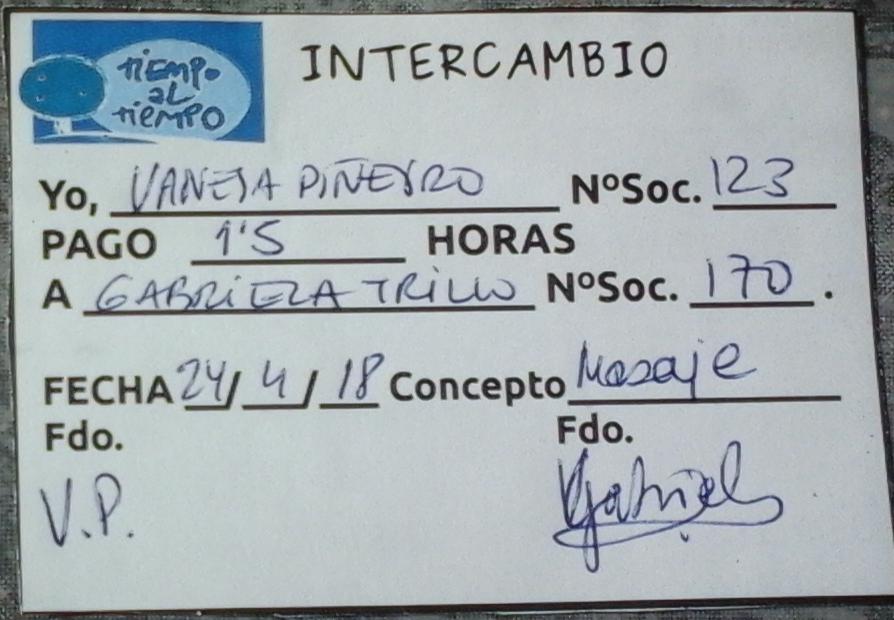 tiEMPO
aL
tiEMPO
INTERCAMBIO
Yo, VANESA PIÑEYRO NºSoc. 123
PAGO 1'5 HORAS
A GABRIELA TRILLO NºSoc. 170.
FECHA 24/4/18 Concepto Masaje
Fdo. Fdo.
V.P. Gabriela